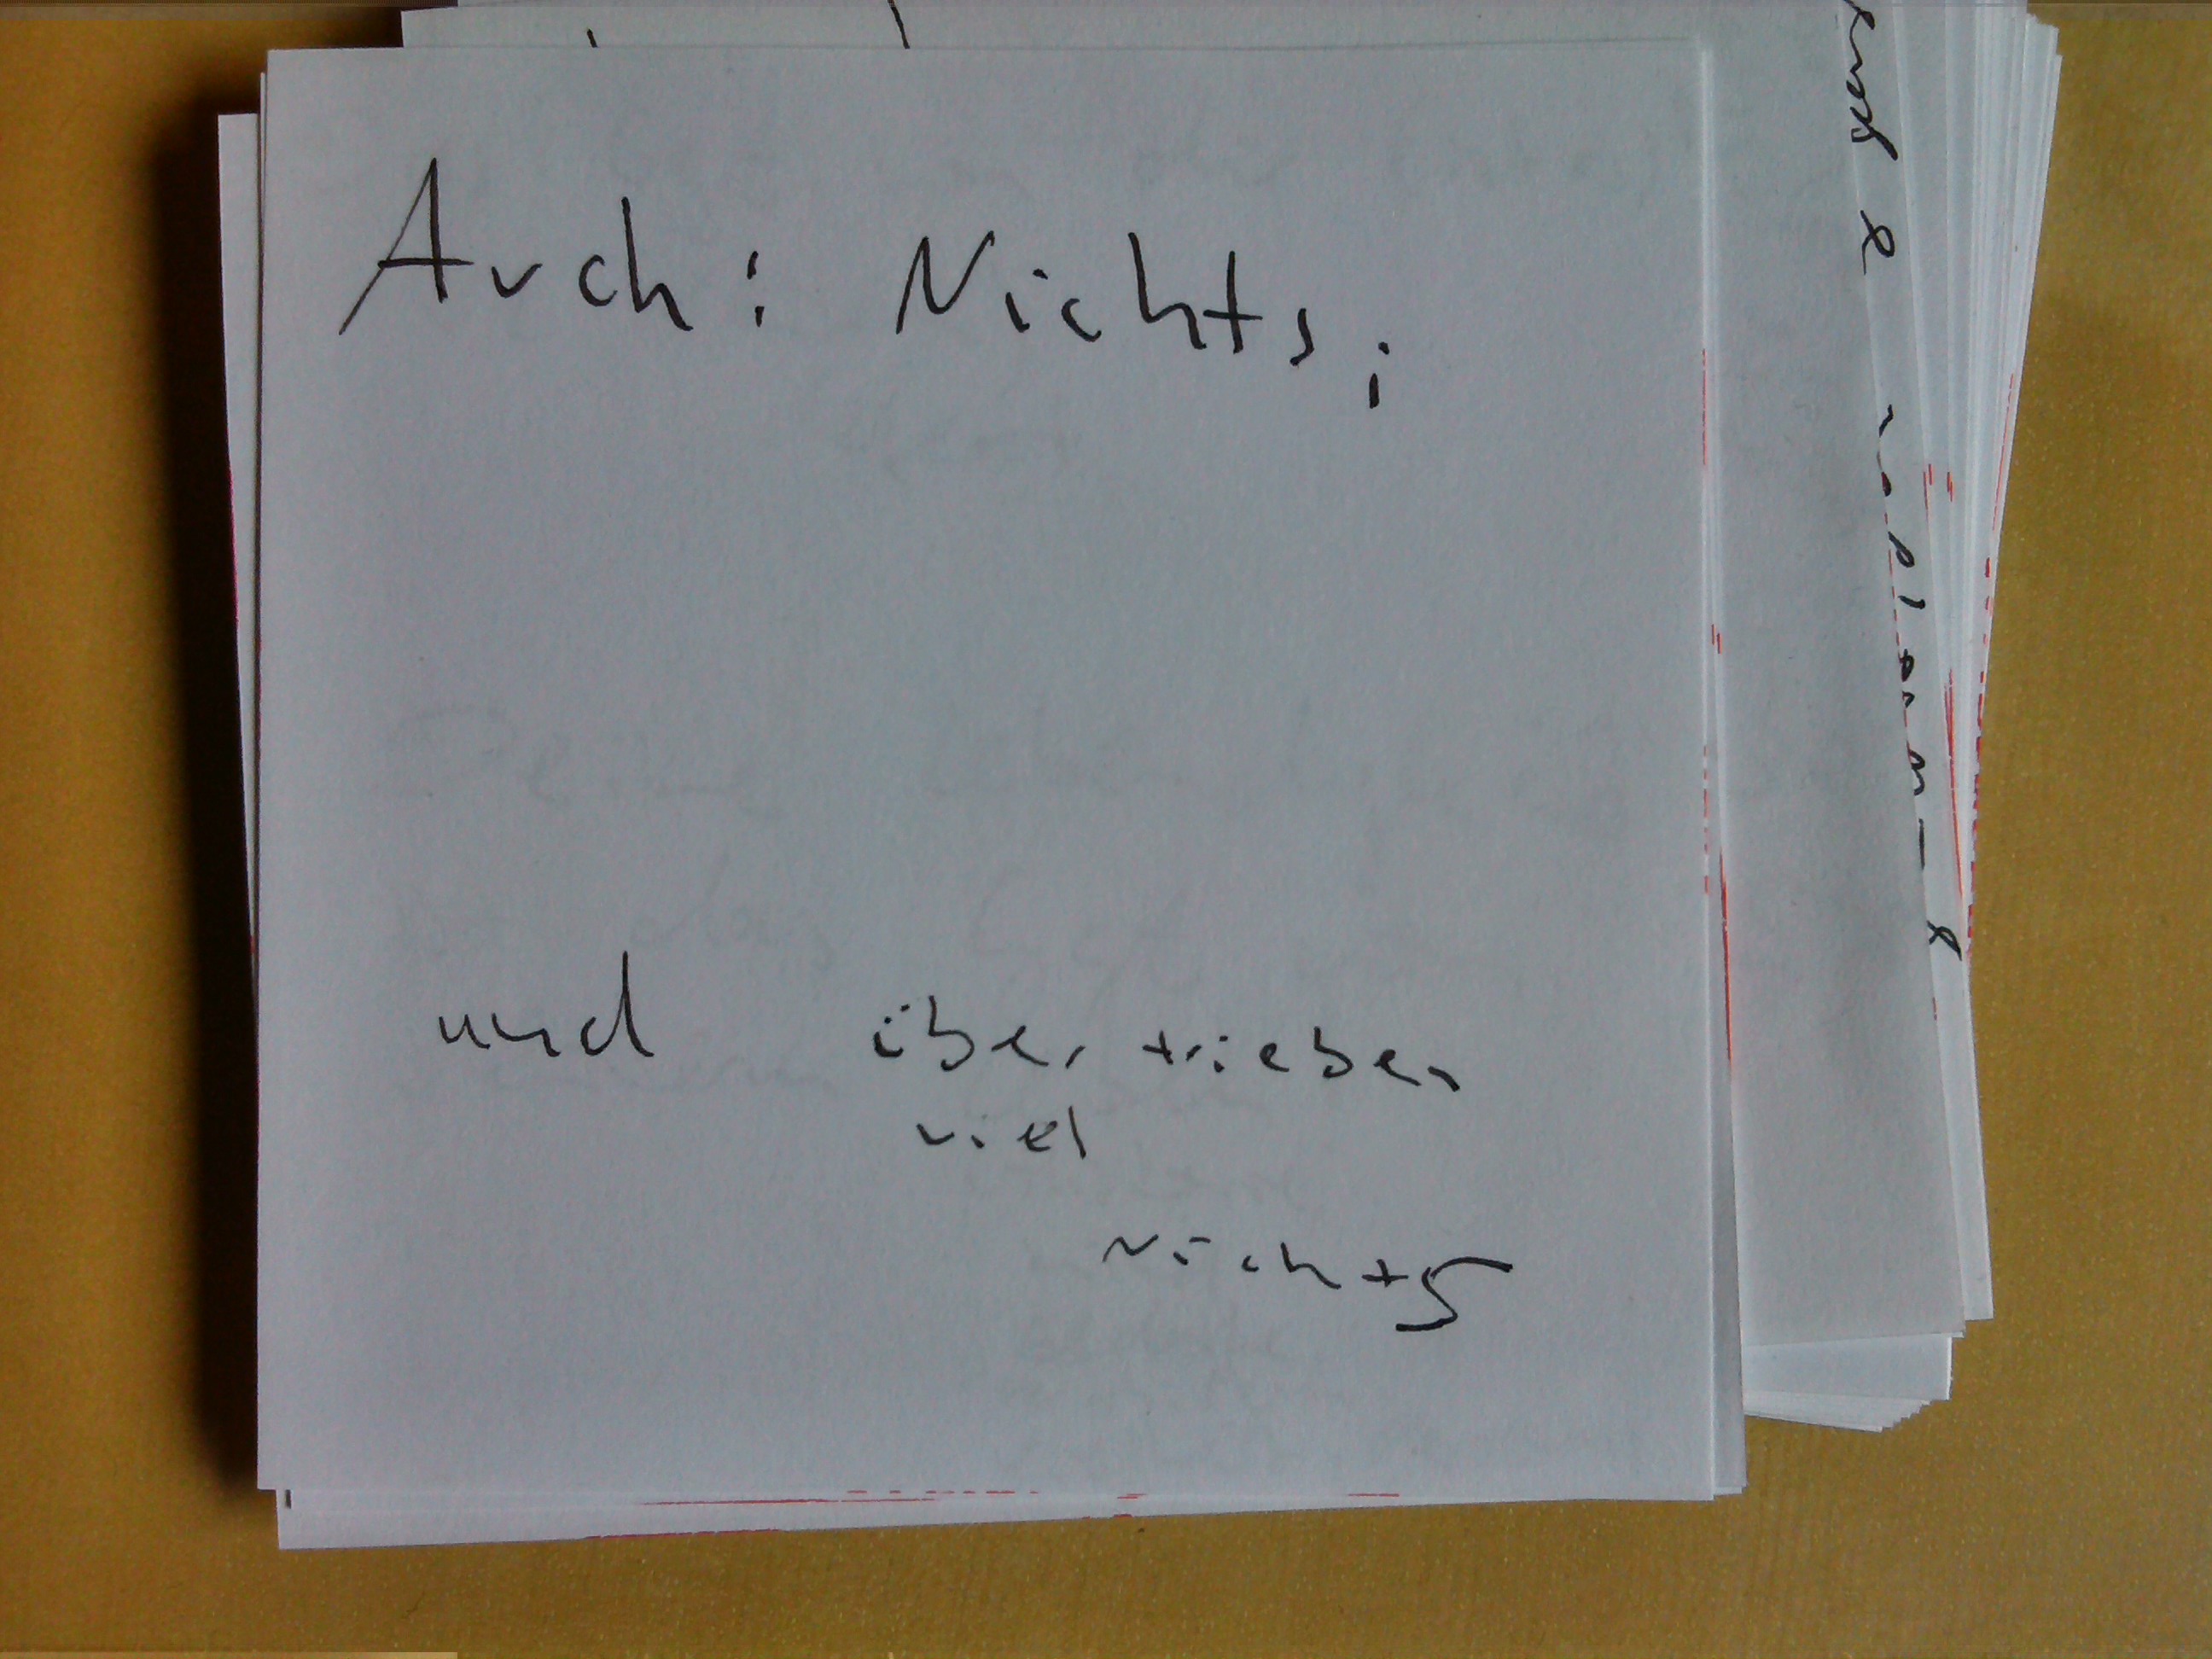 Auch: Nichts;
und übertrieben
viel
Nichts